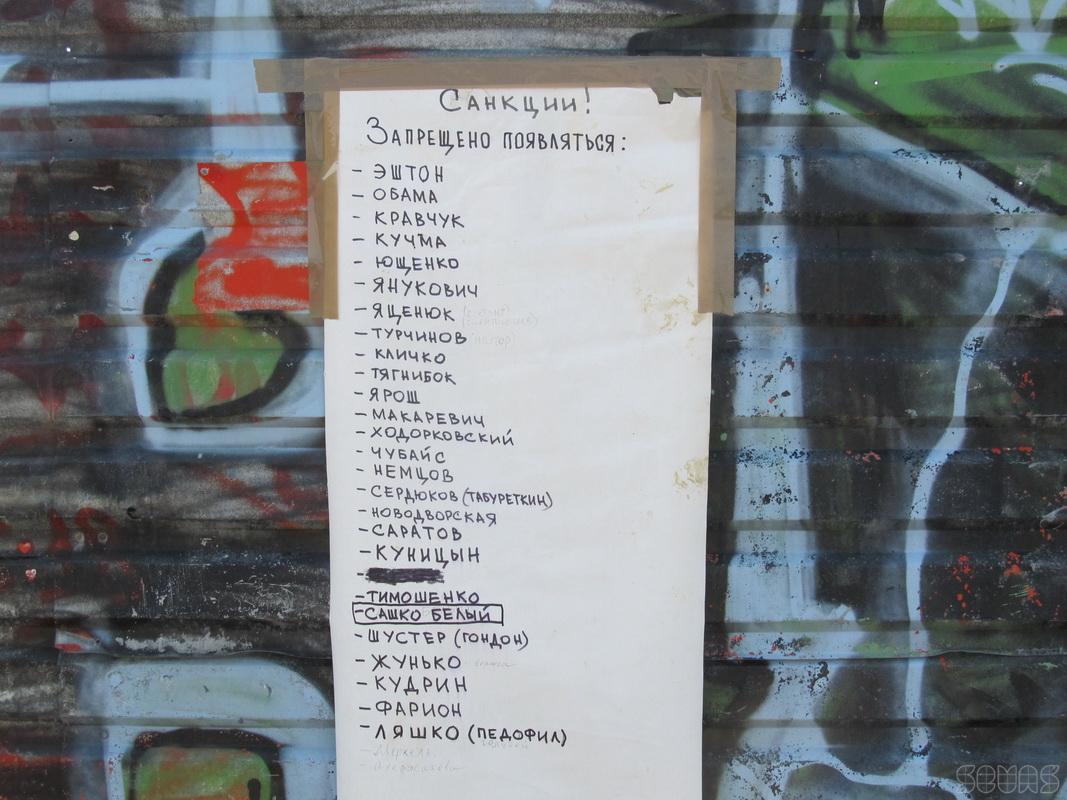 Санкции!
Запрещено появляться:
- Эштон
- Обама
- Кравчук
- Кучма
- Ющенко
- Янукович
- Яценюк
- Турчинов
- Кличко
- Тягнибок
- Ярош
- Макаревич
- Ходорковский
- Чубайс
- Немцов
- Сердюков (Табуреткин)
- Новодворская
- Саратов
- Куницын
-
- Тимошенко
- Сашко Белый
- Шустер (гондон)
- Жунько
- Кудрин
- Фарион
- Ляшко (педофил)
- Меркель
SOMAS